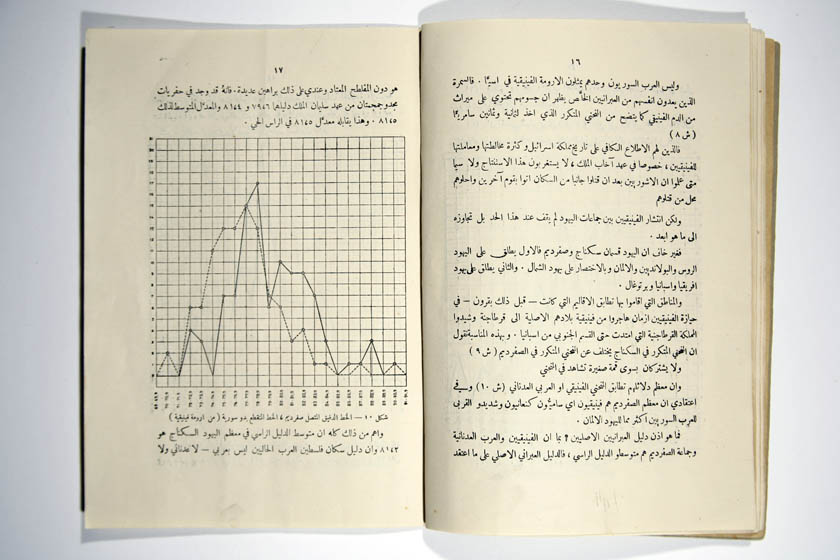 ١٦
وليس العرب السوريون وحدهم يمثلون الارومة الفينيقية في اسيا . فالسمرة
الذين يعدون انفسهم من العبرانيين الخلّص يظهر ان جسومهم تحتوي على ميراث
من الدم الفينيقي كما يتضح من المنحني المتكرر الذي اخذ لثمانية وثمانين سامرياً
(ش ٨)
فالذين لهم الاطلاع الكافي على تاريخ مملكة اسرائيل وكثرة مخالطتها ومعاملتها
للفينيقيين ، خصوصاً في عهد آخاب الملك ، لا يستغربون هذا الاستنتاج ولا سيما
متى علموا ان الاشوريين بعد ان قتلوا جانباً من السكان اتوا بقوم آخرين واحلوهم
محل من قتلوهم
ولكن انتشار الفينيقيين بين جماعات اليهود لم يقف عند هذا الحد بل تجاوزه
الى ما هو ابعد .
فغير خاف ان اليهود قسمان سكناج وصفرديم فالاول يطلق على اليهود
الروس والبولانديين والالمان وبالاختصار على يهود الشمال . والثاني يطلق على يهود
افريقيا واسبانيا وبرتوغال .
والمناطق التي اقاموا بها تطابق الاقاليم التي كانت — قبل ذلك بقرون — في
حيازة الفينيقيين ازمان هاجروا من فينيقية بلادهم الاصلية الى قرطاجنة وشيدوا
المملكة القرطاجنية التي امتدت حتى القسم الجنوبي من اسبانيا . وبهذه المناسبة نقول
ان المنحني المتكرر في السكناج يختلف عن المنحني المتكرر في الصفرديم (ش ٩)
ولا يشتركان بسوى قمة صغيرة تشاهد في المنحني
وان معظم دلائلهم تطابق المنحني الفينيقي او العربي العدناني (ش ١٠) وفي
اعتقادي ان معظم الصفرديم هم فينيقيون اي ساميون كنعانيون وشديدو القربى
للعرب السوريين اكثر مما لليهود الالمان .
فما هو اذن دليل العبرانيين الاصليين ؟ بما ان الفينيقيين والعرب العدنانية
وجماعة الصفرديم هم متوسطو الدليل الراسي ، فالدليل العبراني الاصلي على ما اعتقد
١٧
هو دون المفلطح المعتاد وعندي على ذلك براهين عديدة . فانهُ قد وجد في حفريات
مجدو جمجمتان من عهد سليمان الملك دليلهما ٧٩٤٦ و ٨١٤٤ والمعدل المتوسط لذلك
٨١٤٥ . وهذا يقابله معدّل ٨١٤٥ في الراس الحي .
شكل ١٠ — الخط الدقيق المتصل صفرديم ، الخط المتقطع بدو سورية (من ارومة فينيقية)
واهم من ذلك كله ان متوسط الدليل الراسي في معظم اليهود السكناج هو
٨١٤٢ وان دليل سكان فلسطين العرب الحاليين ليس بعربي — لا عدناني ولا